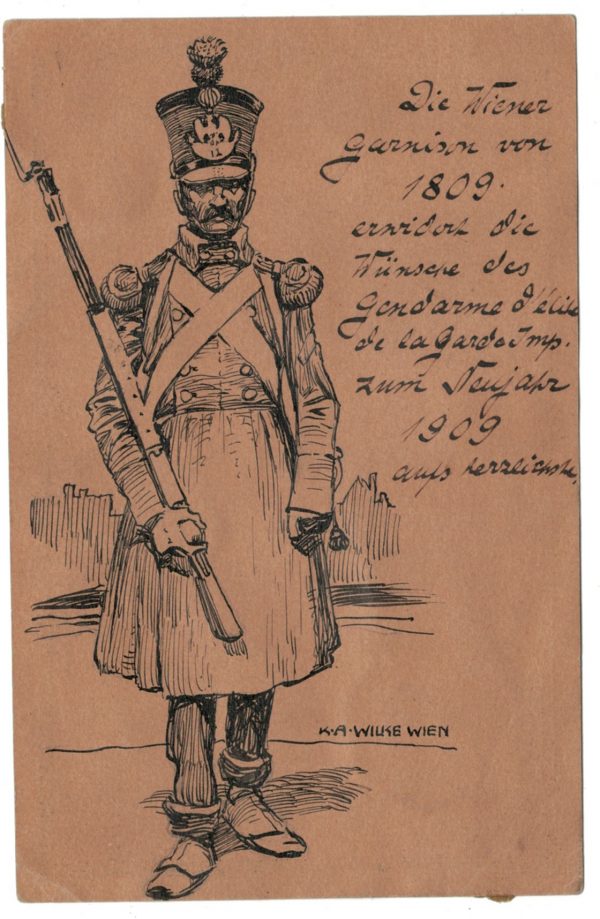 Die Wiener
Garnison von
1809.
erwidert die
Wünsche des
Gendarme d'élite
de la Garde Imp.
zum Neujahr
1909
aufs herzlichste.
K·A·WILKE WIEN